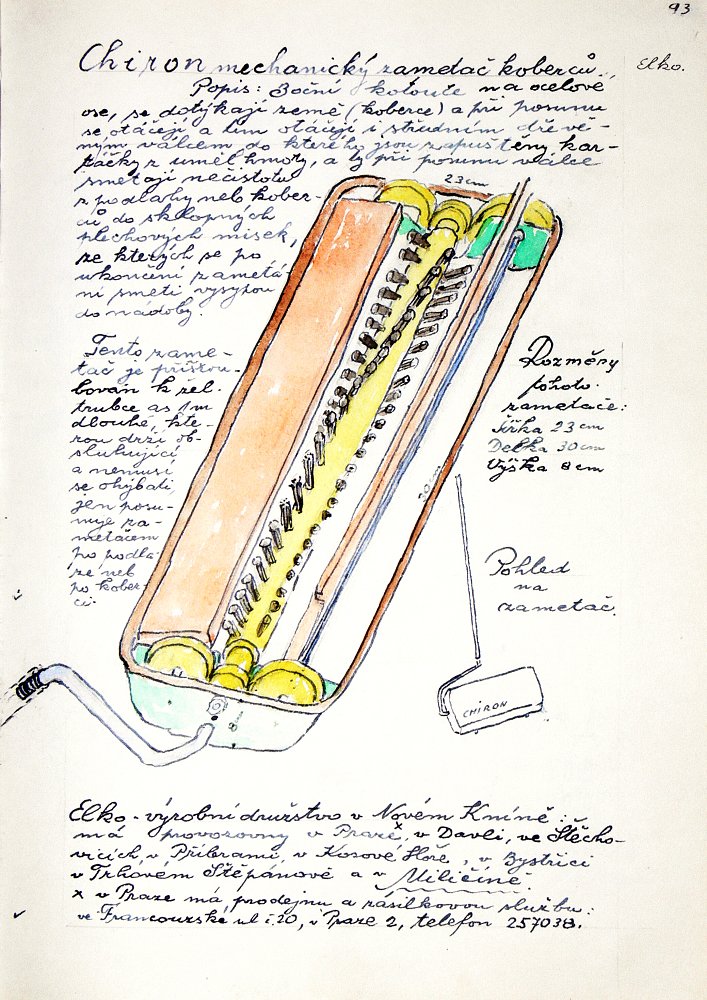 93
Elko.
Chiron mechanický zametač koberců.
Popis: Boční kotouče na ocelové
ose, se dotýkají země (koberce) a při posunu
se otáčejí a tím otáčejí i středním dřevě-
ným válcem do kterého jsou zapuštěny kar-
táčky z uměl. hmoty, a ty při posunu válce
smetají nečistotu
z podlahy neb kober-
ců do sklopných
plechových misek,
ze kterých se po
ukončení zametá-
ní smetí vysypou
do nádoby.
23 cm
Tento zame-
tač je přišrou-
bován k žel.
trubce as 1 m
dlouhé, kte-
rou drží ob-
sluhující
a nemusí
se ohýbati,
jen posu-
nuje za-
metačem
po podla-
ze neb
po kober-
ci.
Rozměry
tohoto
zametače:
Šířka 23 cm
Delka 30 cm
Výška 8 cm
30 cm
Pohled
na
zametač.
CHIRON
8
Elko - výrobní družstvo v Novém Kníně:
má provozovny v Praze x, v Davli, ve Štěcho-
vicích, v Příbrami, v Kosově Hoře, v Bystřici
v Trhovém Štěpánově a v Miličíně.
x v Praze má prodejnu a zásilkovou službu:
ve Francouzské ul č. 20, v Praze 2, telefon 257038.